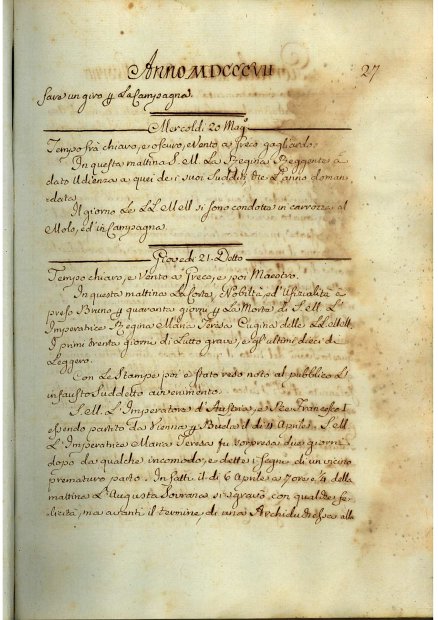 Anno MDCCCVII
27
fare un giro p La Campagna.
Mercoldì 20 Magº
Tempo frà chiaro, e oscuro, e Vento a Greco gagliardo.
In questa mattina S. M. La Regina Reggente à
dato Udienza a quei de i suoi Sudditi, che L'anno doman=
data.
Il giorno Le LL. MM. si sono condotte in carrozza al
Molo, ed in Campagna.
Giovedì 21. Detto
Tempo chiaro, e Vento a Greco, e poi Maestro.
In questa mattina La Corte, Nobiltà, ed Ufizialità à
preso Bruno p quaranta giorni p La Morte di S. M. L'
Imperatrice Regina Maria Teresa Cugina delle LL. MM.
I primi trenta giorni di Lutto grave, e gli ultimi dieci di
Leggero.
Con Le Stampe poi è stato reso noto al pubblico L'
infausto Suddetto avvenimento.
S. M. L'Imperatore d'Austria, e Re Francesco I
essendo partito da Vienna p Buda il dì 4 Aprile, S. M.
L'Imperatrice Maria Teresa fu sorpresa due giorni
dopo da qualche incomodo, e dette i segni di un vicino
prematuro parto. In fatti il dì 6 Aprile a 7 ore e ¼ della
mattina L'Augusta Sovrana si sgravò con qualche fe=
licità, ma avanti il termine, di una Archiduchessa alla